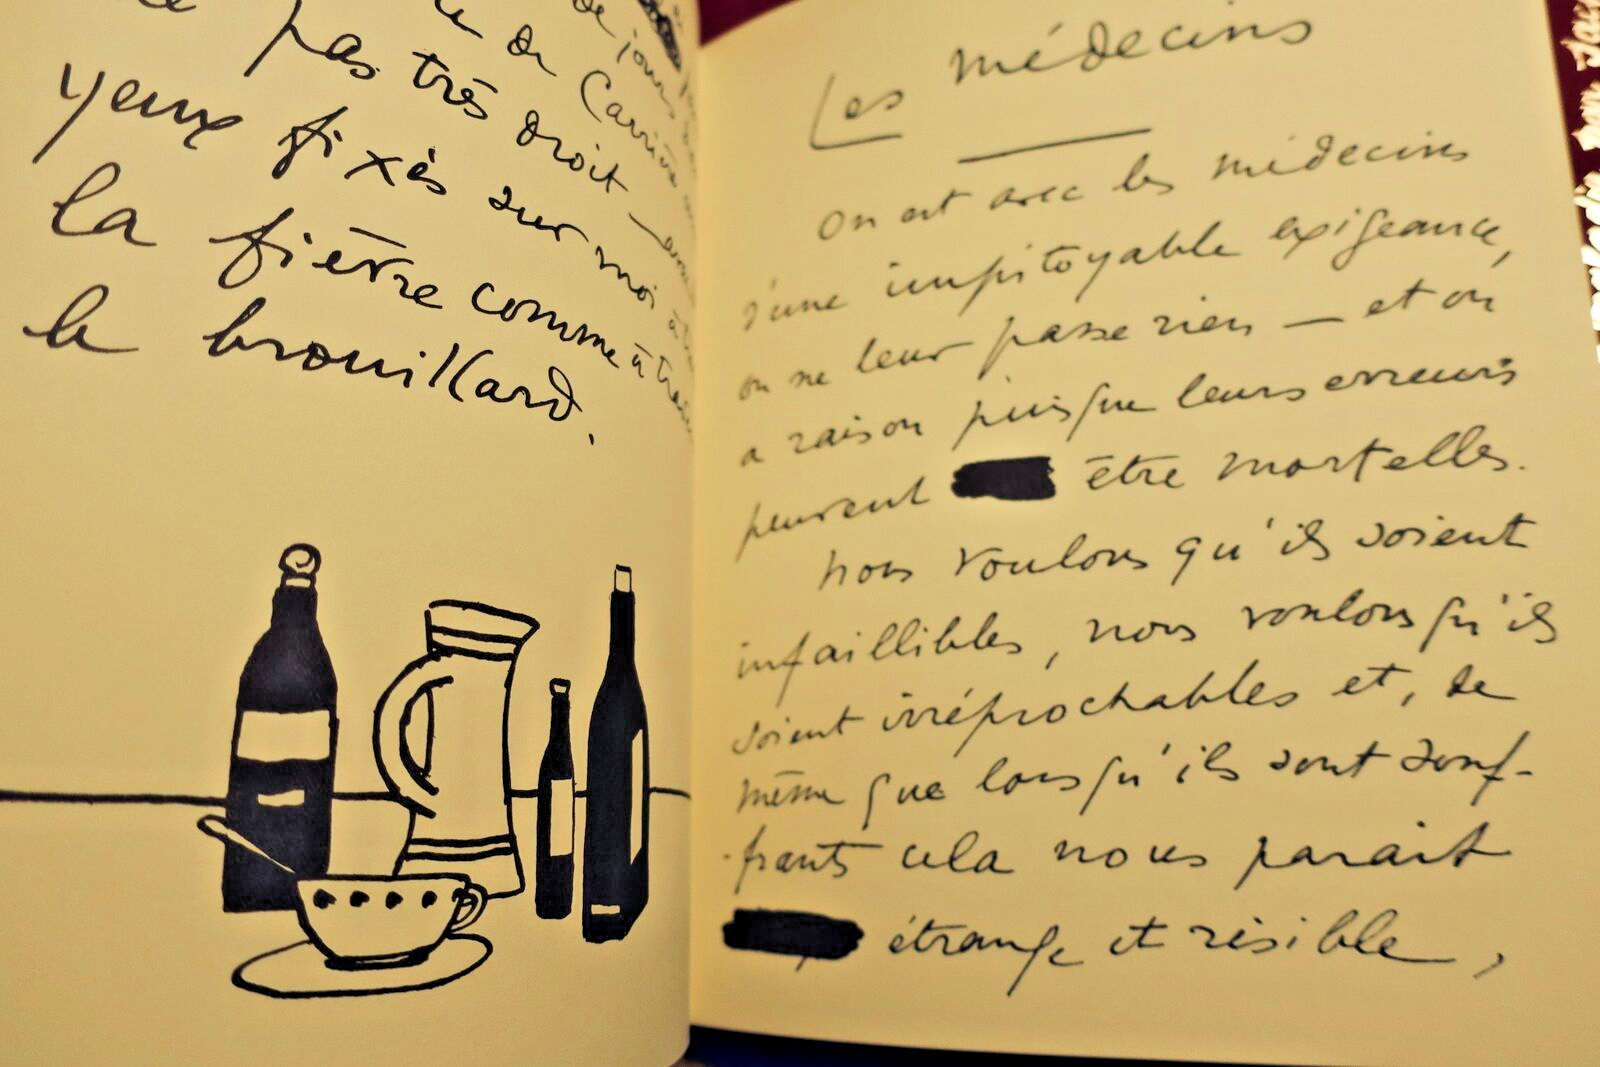 pas très droit —
yeux fixés sur moi à
la fièvre comme à
le brouillard.
Les médecins
On est avec les médecins
d'une impitoyable exigeance,
on ne leur passe rien — et on
a raison puisque leurs erreurs
peuvent être mortelles.
Nous voulons qu'ils soient
infaillibles, nous voulons qu'ils
soient irréprochables et, de
même que lorsqu'ils sont souf-
-frants cela nous parait
étrange et risible,